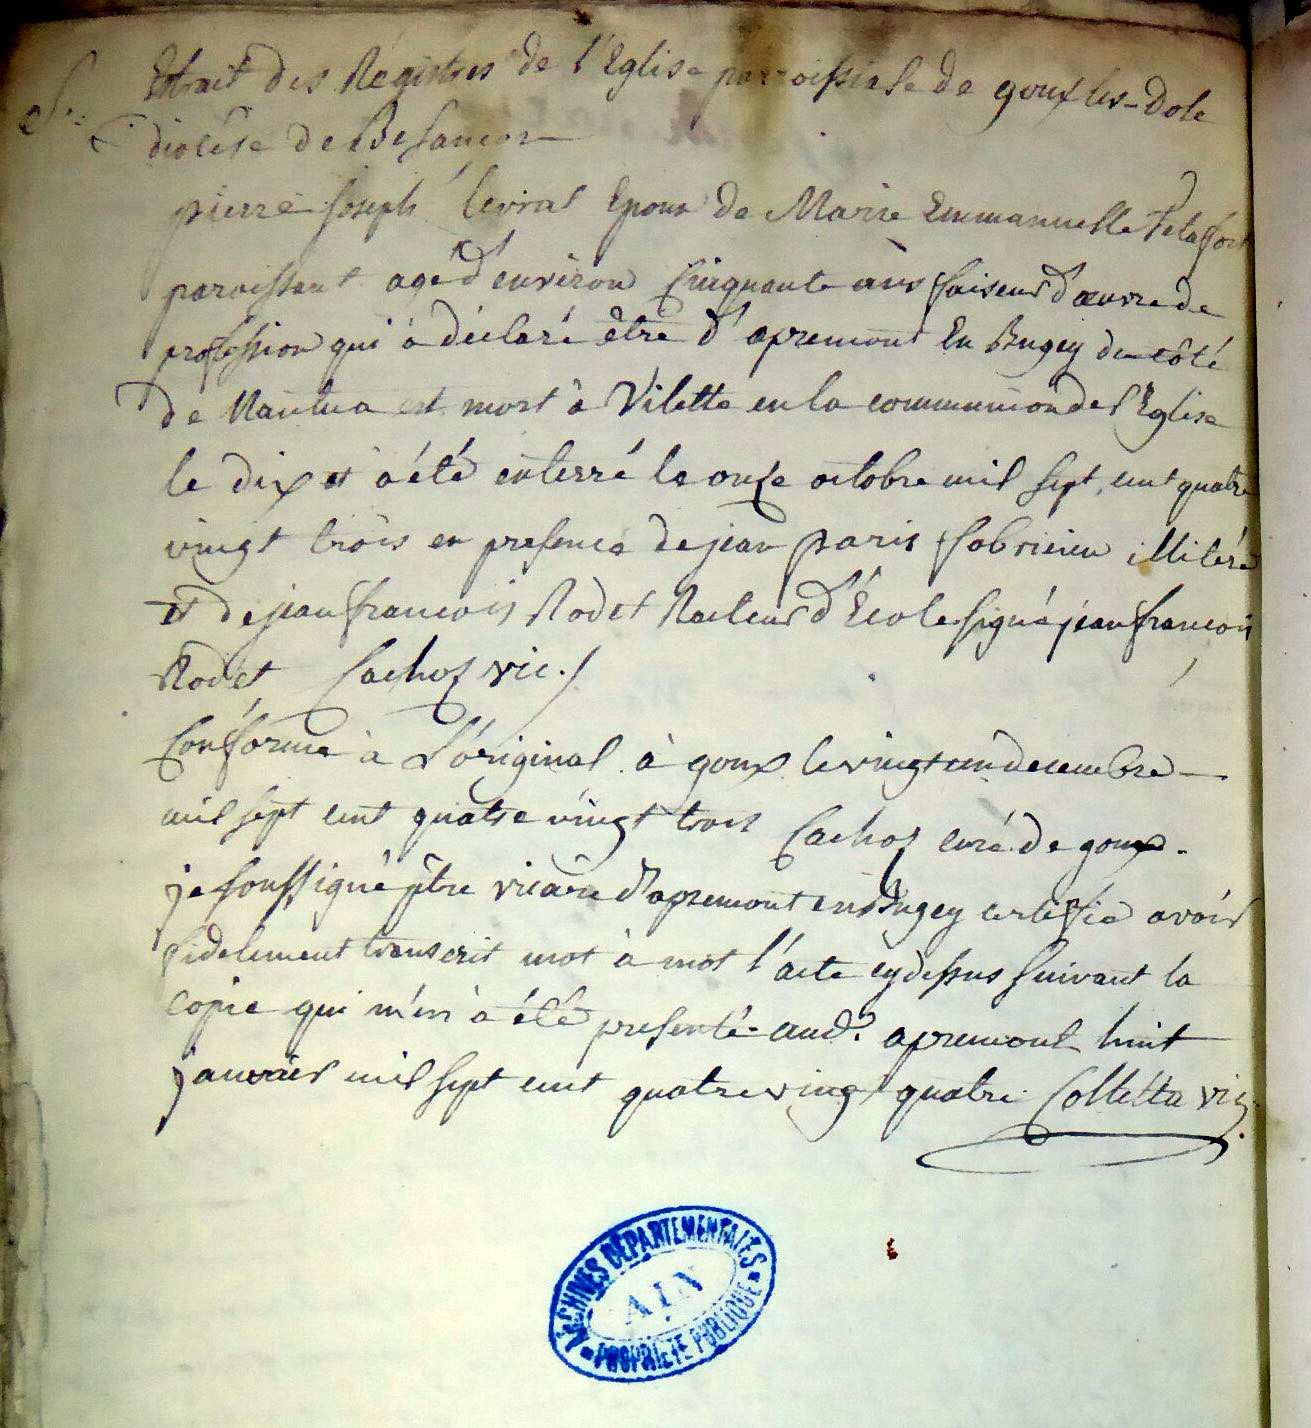 Extrait des Registres de l'Eglise parroissiale de goux les-Dole
diocèse de Besançon
pierre joseph levrat Epoux de Marie Emmanuelle
paroissant agé d'environ Cinquante ans faiseur d'œuvre de
profession qui à déclaré être d'apremont En Bugey du côté
de Nantua est mort à Vilette en la communion de l'Eglise
le dix et à été enterré le onze octobre mil sept cent quatre
vingt trois en presence de jean paris illiteré
et de jean francois Rodet Recteur d'Ecole signé jean francois
Rodet Cachoz vic./
Conforme à L'original à goux le vingt un decembre
mil sept cent quatre vingt trois Cachoz curé de goux.
je soussigné ptre vicaire d'apremont en Bugey certifie avoir
fidelement transcrit mot à mot l'acte cy dessus suivant la
copie qui m'en à été presenté. aud. apremont huit
janvier mil sept cent quatre vingt quatre. Colletta vic.
ARCHIVES DÉPARTEMENTALES
AIN
PROPRIÉTÉ PUBLIQUE